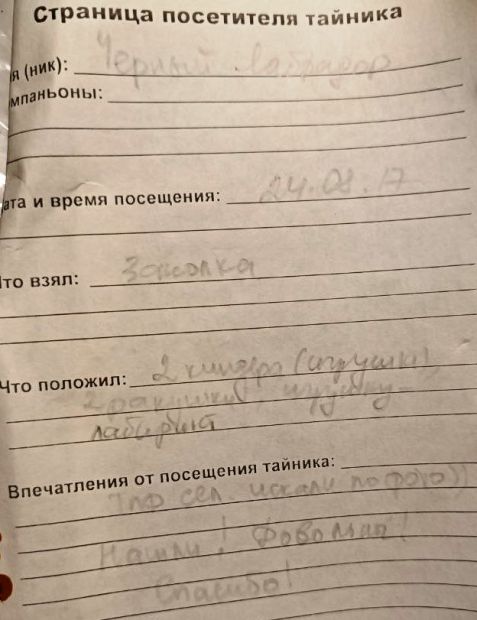 Страница посетителя тайника
я (ник): Черный лабрадор
мпаньоны:
ата и время посещения: 24.08.17
то взял: Заколка
Что положил: 2 киндера (игрушки),
2 ракушки, игрушку-
лабиринт
Впечатления от посещения тайника:
искали по фото))
Нашли!
Спасибо!